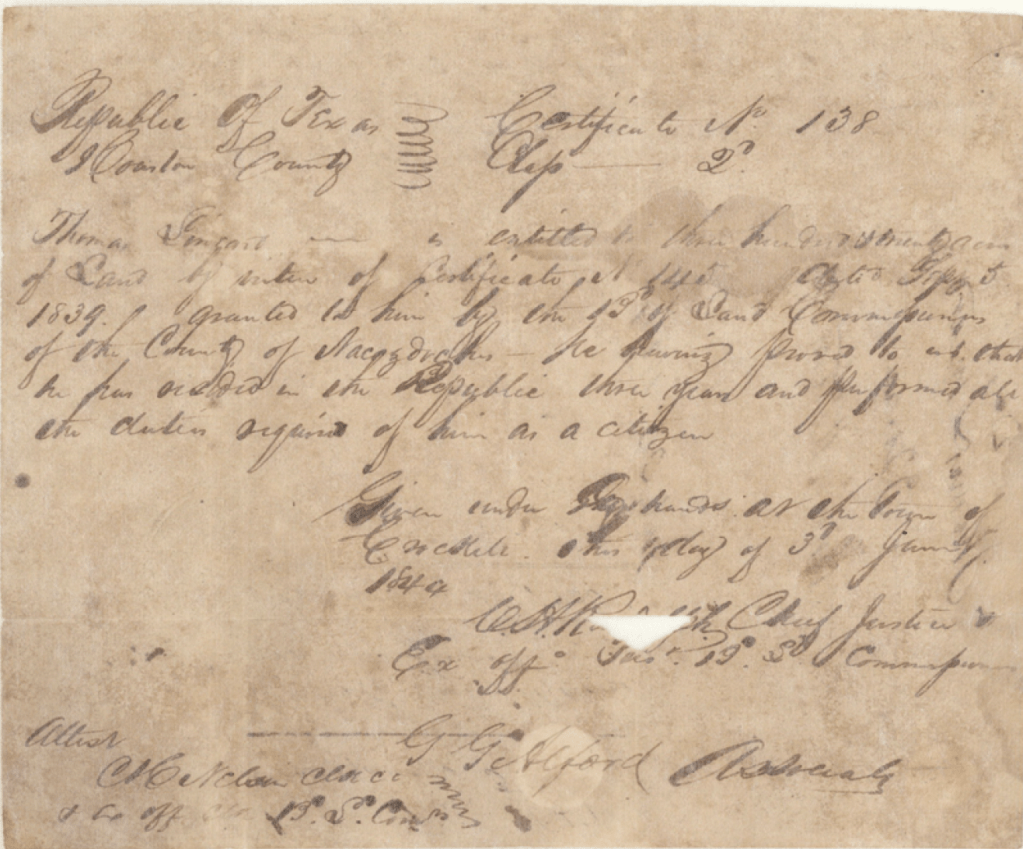 Republic Of Texas Certificate No. 138
Houston County Class — 2d
Thomas is entitled to three hundred twenty acres
of Land by virtue of Certificate
1839. granted to him by the Bd of Land Commissioners
of the County of Nacogdoches — he having proved to us that
he has resided in the Republic three years and performed all
the duties required of him as a citizen
Given under hands at the Town of
Crockett this day of 3d
1840
C. H. Chief Justice
Ex off Bd Ld Commissioner
Attest G G Alford Associate
Nelson
& Ex off Bd. Ld. Com